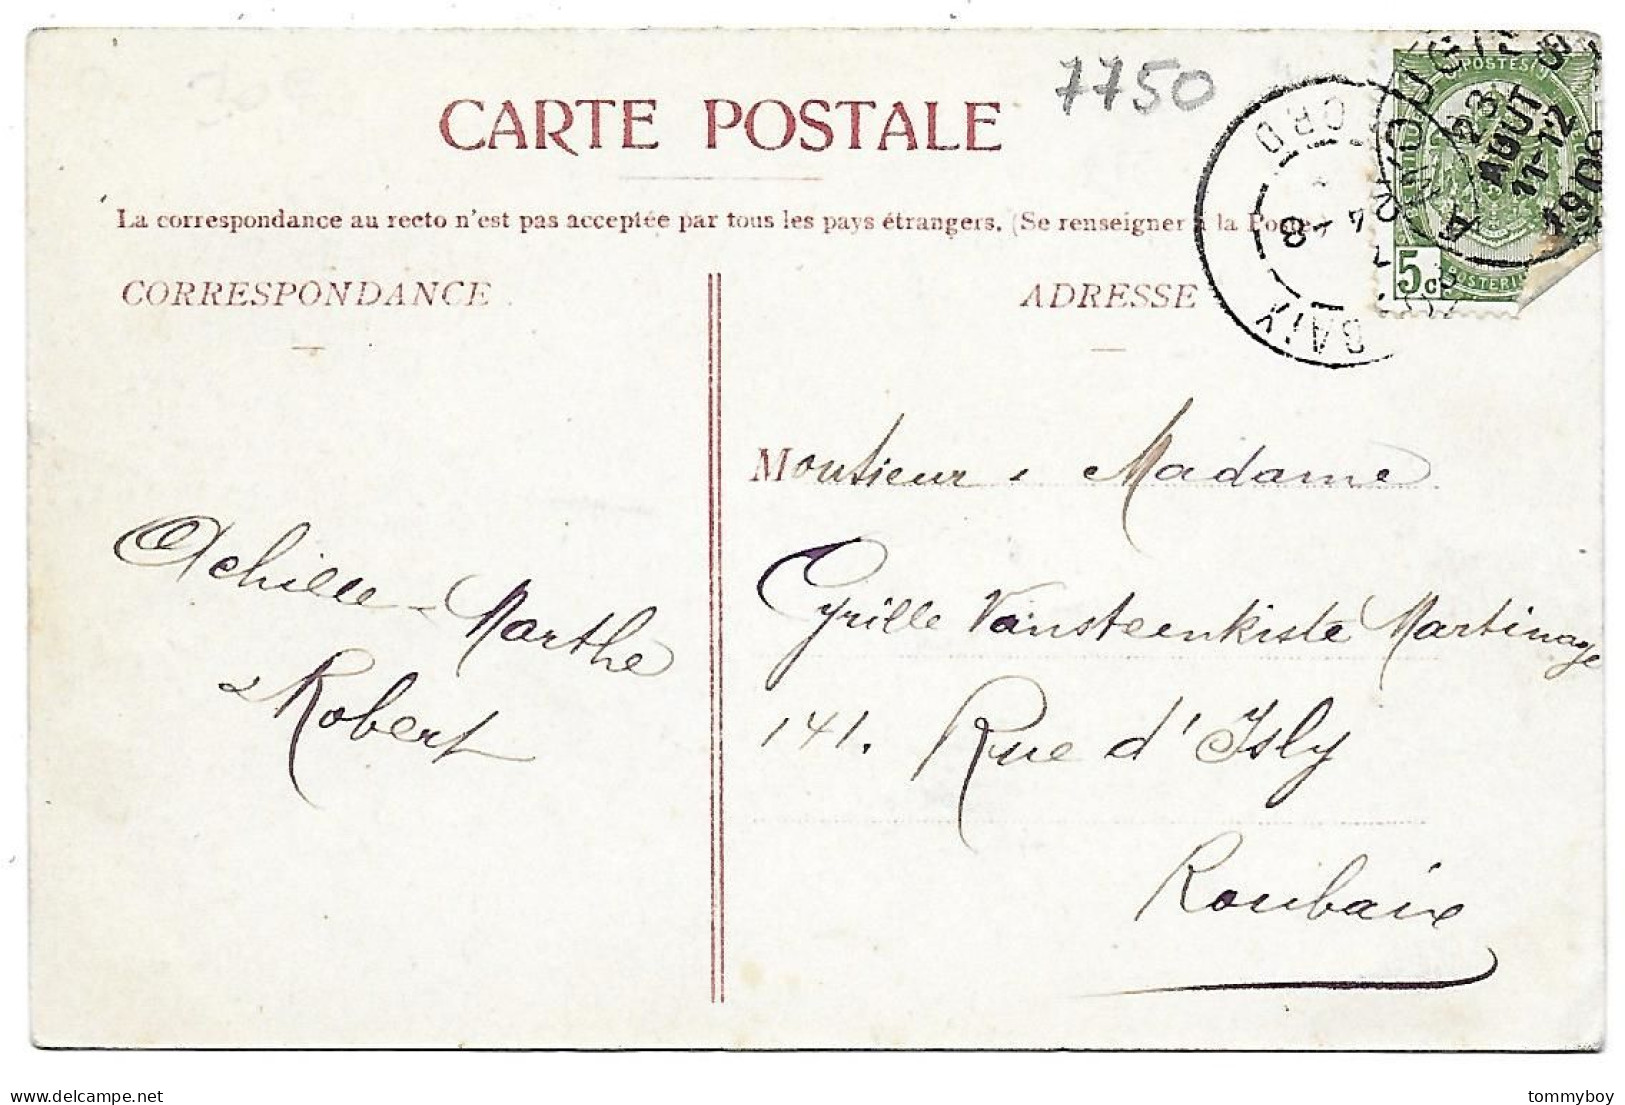 7750
CARTE POSTALE
La correspondance au recto n'est pas acceptée par tous les pays étrangers. (Se renseigner à la Poste.)
CORRESPONDANCE
ADRESSE
POSTES
23
AOUT
11-12
1908
5c
Monsieur & Madame
Cyrille Vansteenkiste Martinage
141. Rue d'Isly
Roubaix
Achille & Marthe
& Robert
tommyboy